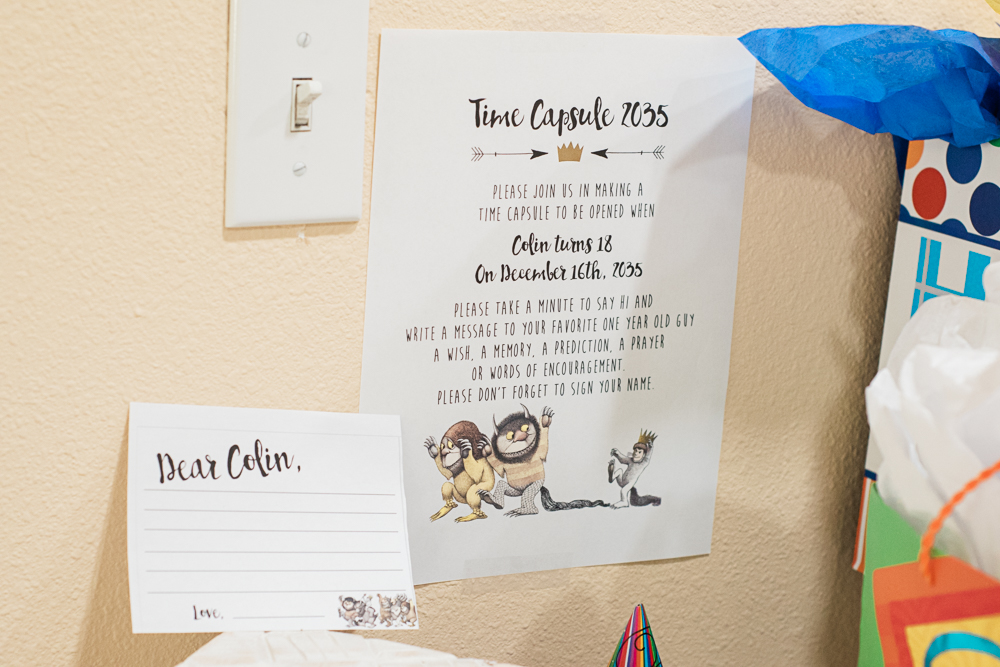 Time Capsule 2035
PLEASE JOIN US IN MAKING A
TIME CAPSULE TO BE OPENED WHEN
Colin turns 18
On December 16th, 2035
PLEASE TAKE A MINUTE TO SAY HI AND
WRITE A MESSAGE TO YOUR FAVORITE ONE YEAR OLD GUY
A WISH, A MEMORY, A PREDICTION, A PRAYER
OR WORDS OF ENCOURAGEMENT.
PLEASE DON'T FORGET TO SIGN YOUR NAME.
Dear Colin,
Love,